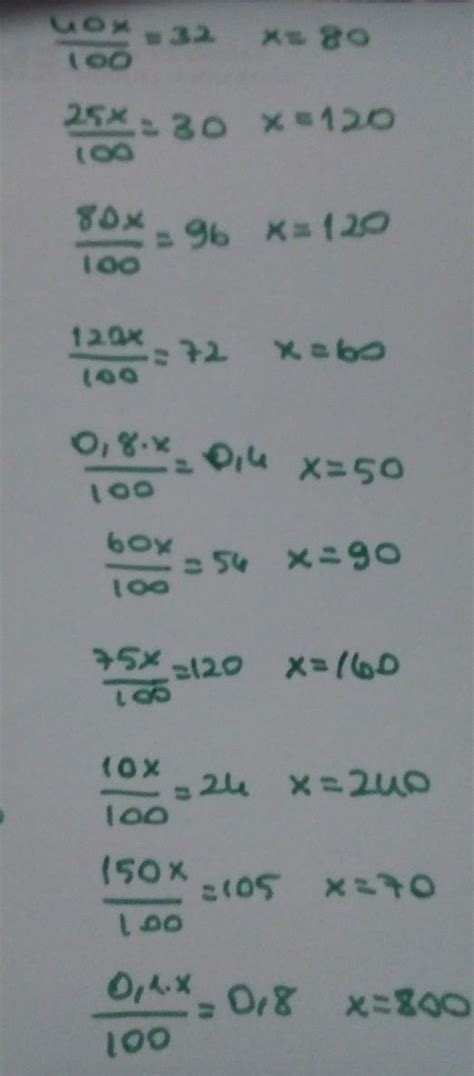 40x/100 = 32 x = 80
25x/100 = 30 x = 120
80x/100 = 96 x = 120
120x/100 = 72 x = 60
0,8·x/100 = 0,4 x = 50
60x/100 = 54 x = 90
75x/100 = 120 x = 160
10x/100 = 24 x = 240
150x/100 = 105 x = 70
0,1·x/100 = 0,8 x = 800